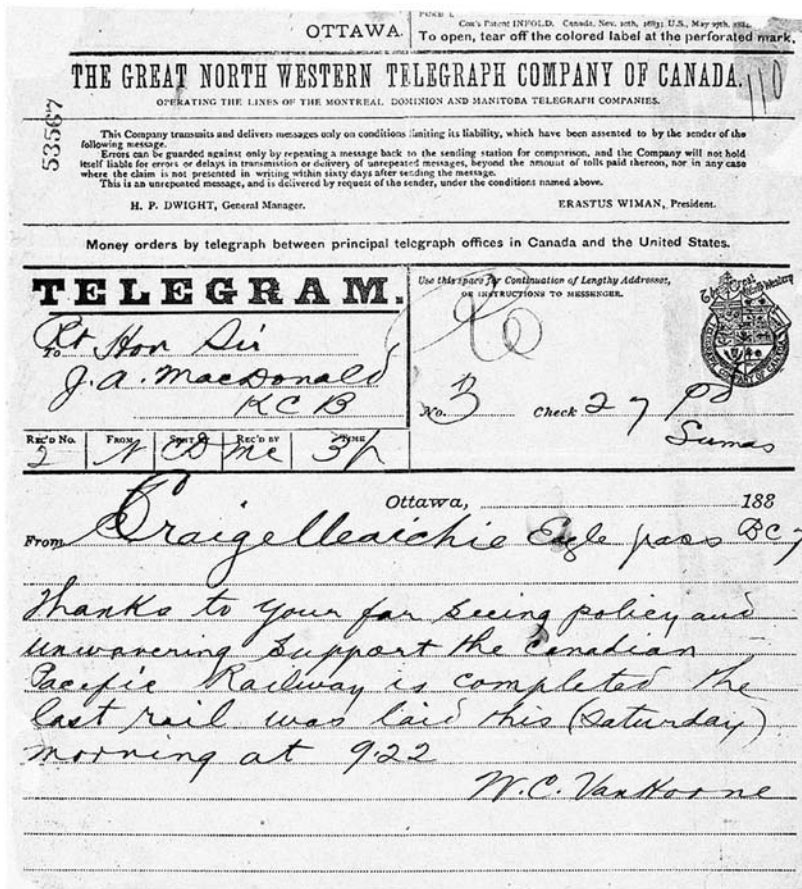 OTTAWA.
FORM 1.
Cox's Patent INFOLD. Canada, Nov. 10th, 1883; U.S., May 27th, 1884.
To open, tear off the colored label at the perforated mark.
THE GREAT NORTH WESTERN TELEGRAPH COMPANY OF CANADA.
110
OPERATING THE LINES OF THE MONTREAL, DOMINION AND MANITOBA TELEGRAPH COMPANIES.
53567
This Company transmits and delivers messages only on conditions limiting its liability, which have been assented to by the sender of the
following message.
Errors can be guarded against only by repeating a message back to the sending station for comparison, and the Company will not hold
itself liable for errors or delays in transmission or delivery of unrepeated messages, beyond the amount of tolls paid thereon, nor in any case
where the claim is not presented in writing within sixty days after sending the message.
This is an unrepeated message, and is delivered by request of the sender, under the conditions named above.
H. P. DWIGHT, General Manager.
ERASTUS WIMAN, President.
Money orders by telegraph between principal telegraph offices in Canada and the United States.
TELEGRAM.
Use this space for Continuation of Lengthy Addresses,
OR INSTRUCTIONS TO MESSENGER.
The Great North Western
TELEGRAPH COMPANY OF CANADA
To Rt Hon Sir
J. A. MacDonald
KCB
No. 3 Check 27 pd
Sumas
REC'D No. FROM SENT BY REC'D BY TIME
2 N CD Mc
Ottawa, 188
From Craigelleaichie Eagle pass BC 7
Thanks to your far seeing policy and
unwavering support the Canadian
Pacific Railway is completed the
last rail was laid this (Saturday)
morning at 9.22
W.C. Van Horne